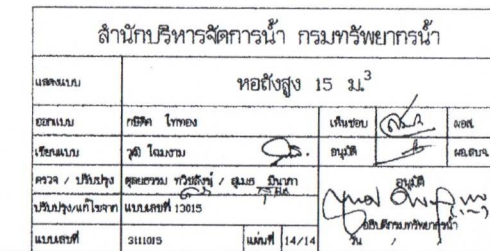 สำนักบริหารจัดการน้ำ กรมทรัพยากรน้ำ
แสดงแบบ หอถังสูง 15 ม.³
ออกแบบ ไททอง เห็นชอบ ผอส.
เขียนแบบ วุฒิ โฉมงาม อนุมัติ ผอ.สบจ.
ตรวจ / ปรับปรุง / อนุมัติ
ปรับปรุง/แก้ไขจาก แบบเลขที่ 13015
อธิบดีกรมทรัพยากรน้ำ
แบบเลขที่ 3111015 แผ่นที่ 14/14 วัน /